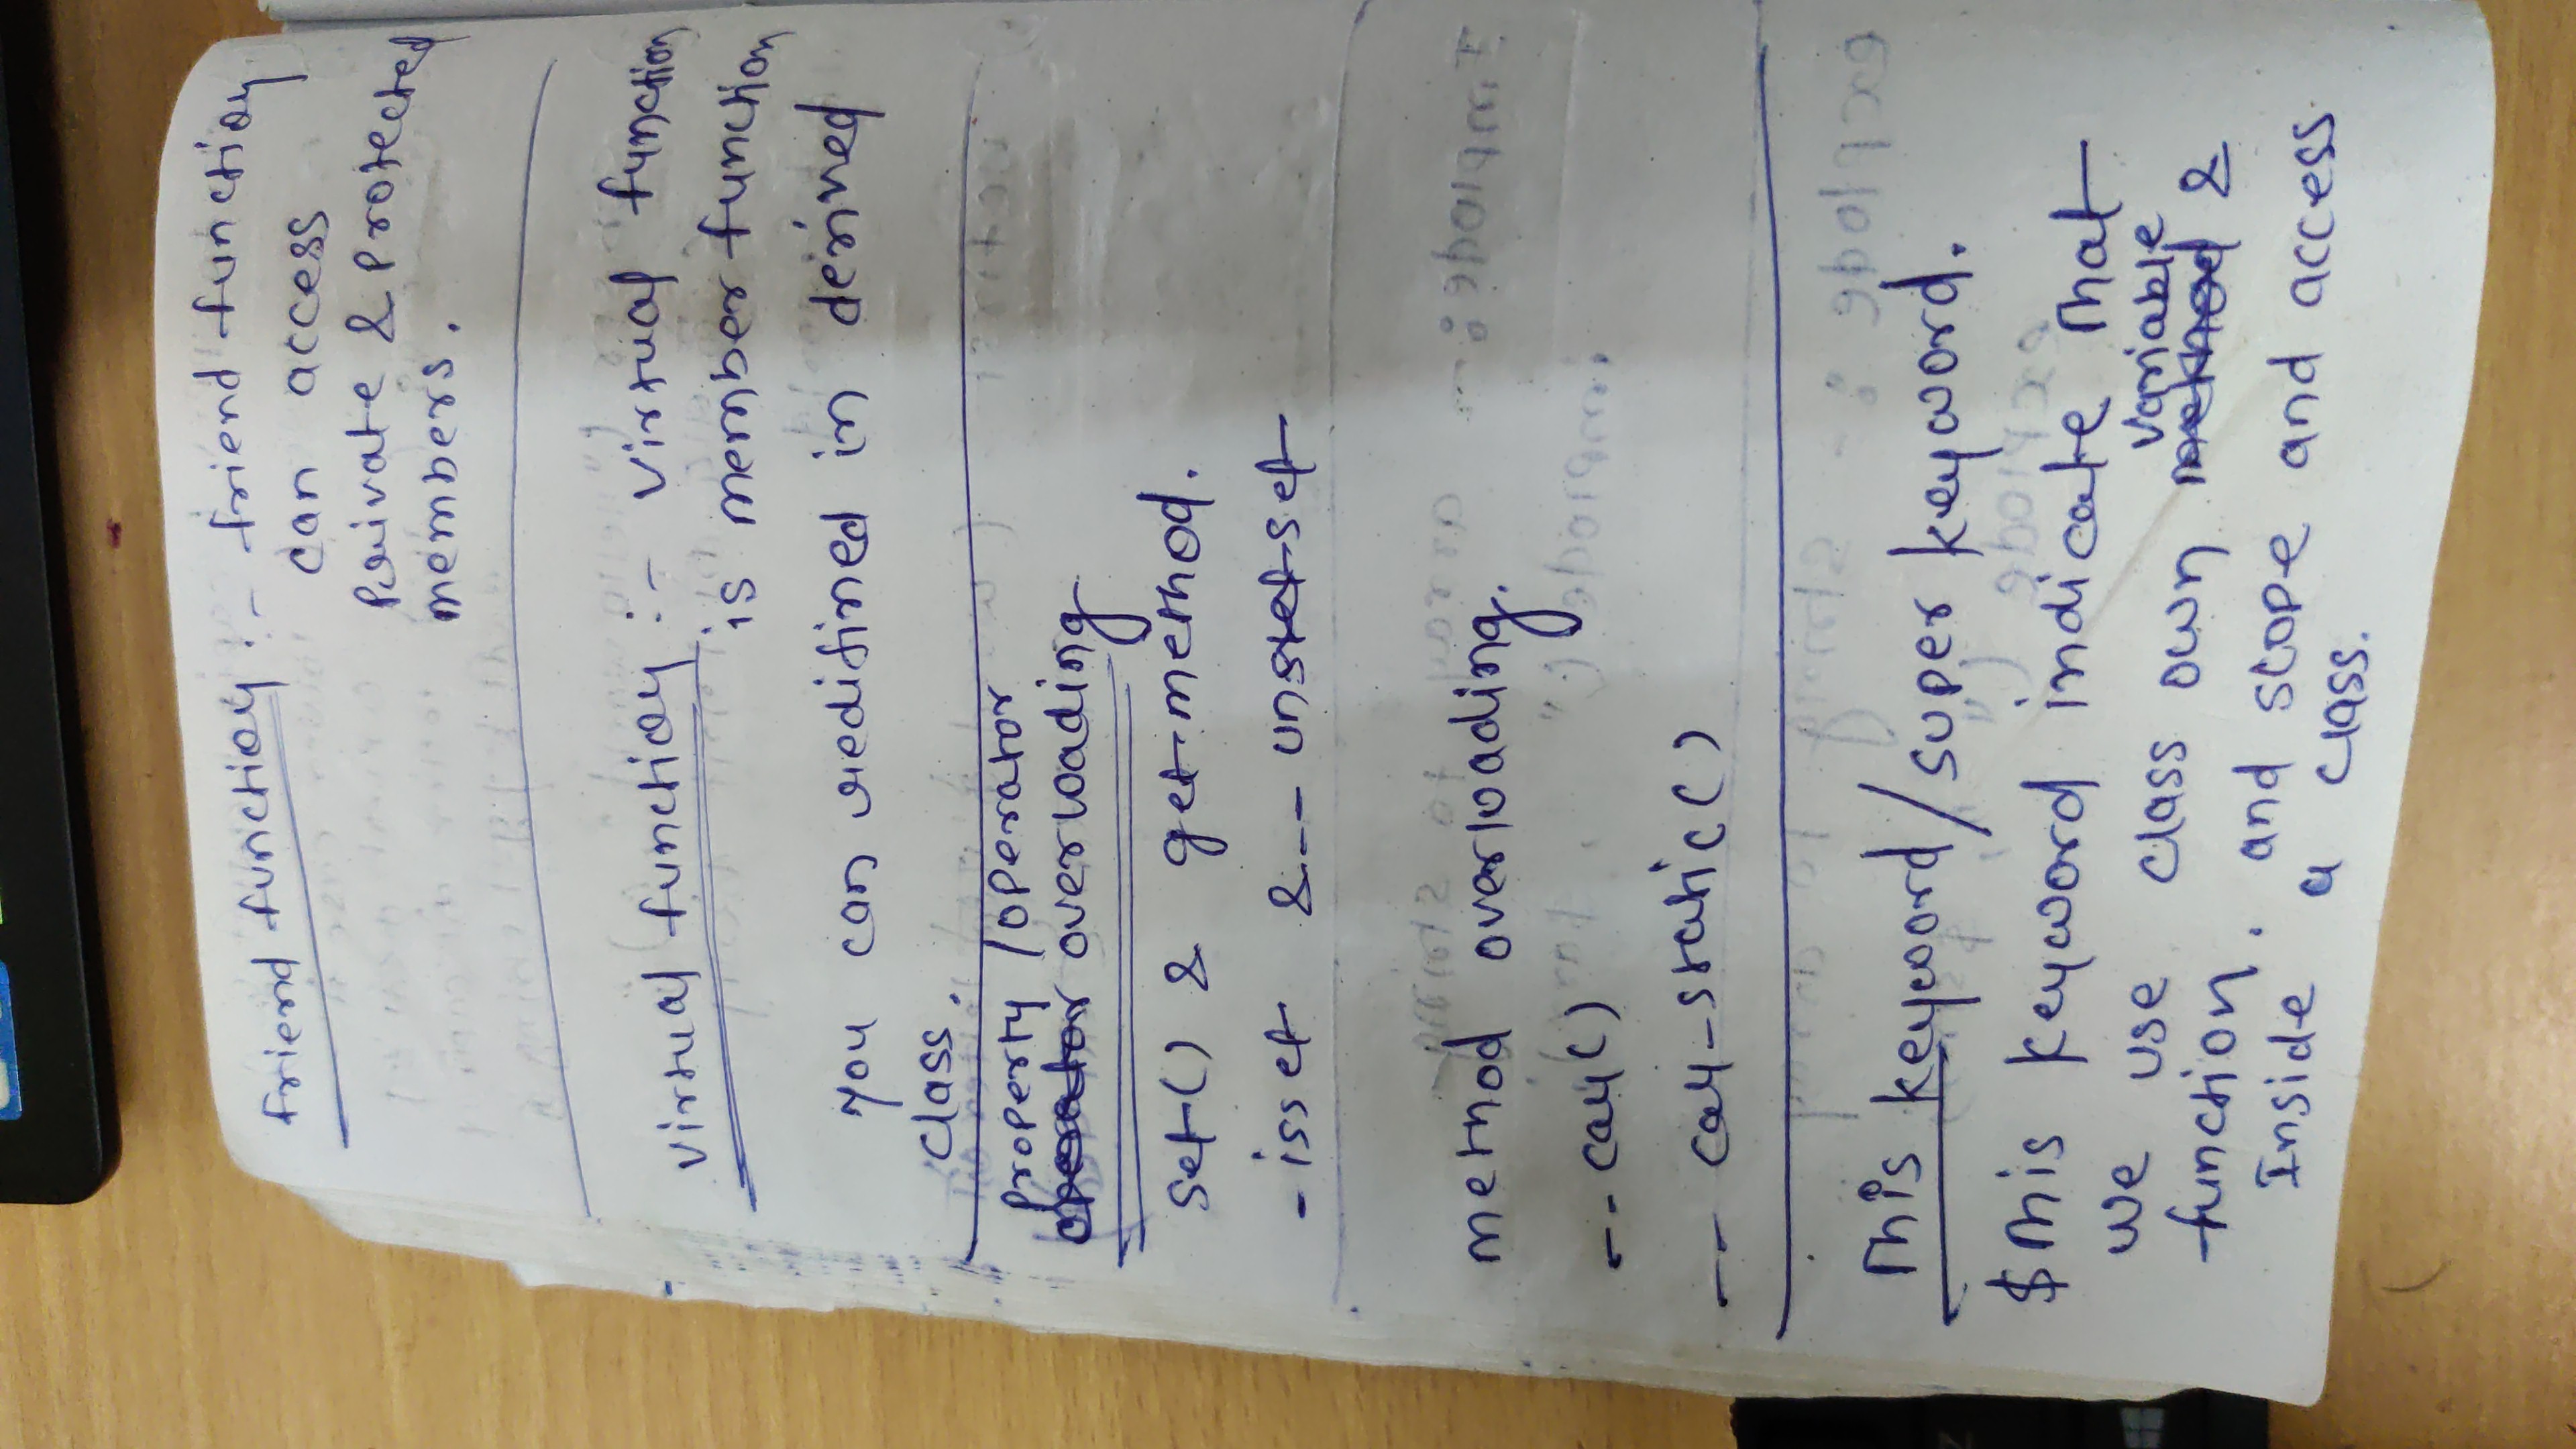 friend function :- friend function
can access
private & protected
members.
virtual function :- virtual function
is member function
you can redifined in derived
class.
property / operator
operator overloading
set() & get method.
- isset & -- unset set
method overloading.
-- call()
-- call-static()
This keyword / super keyword.
$this keyword indicate that
we use class own variable
method &
function. and scope and access
Inside a class.